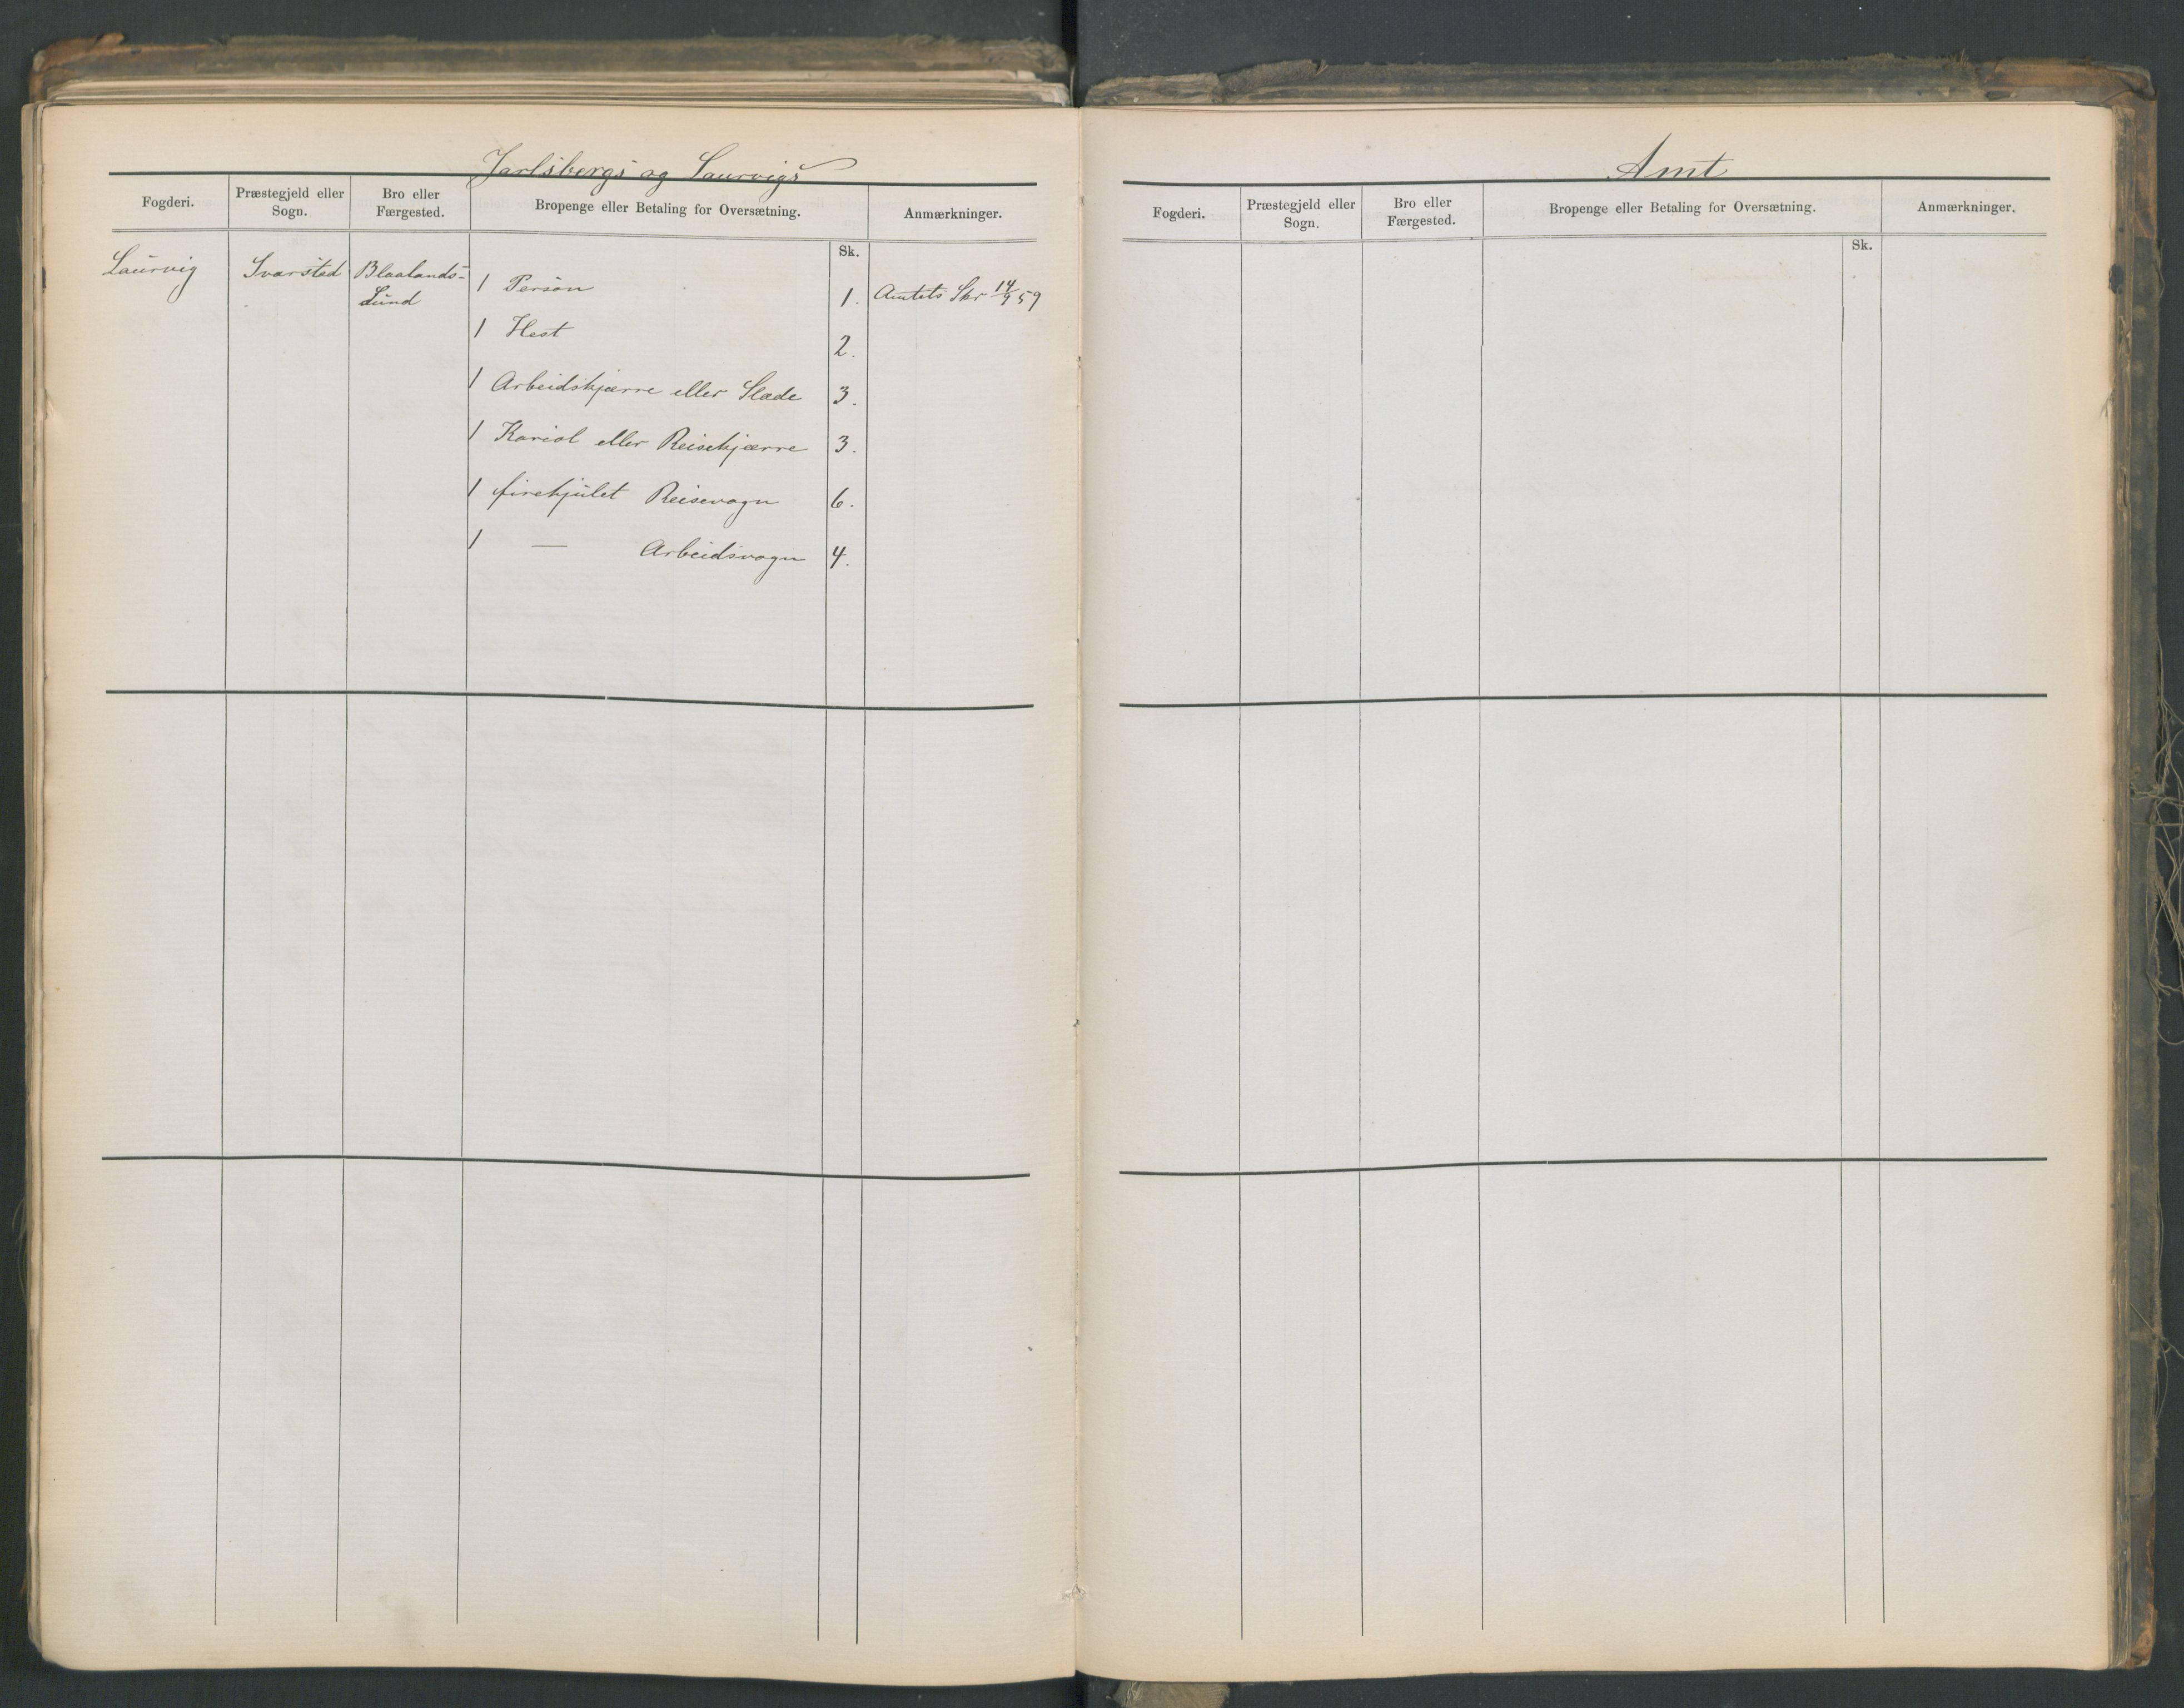 Jarlsbergs og Laurvigs
Fogderi.
Præstegjeld eller
Sogn.
Bro eller
Færgested.
Bropenge eller Betaling for Oversætning.
Anmærkninger.
Sk.
Laurvig Svarstad Blaalands-
Sund
1 Person 1. Amtets Skr 14/9 59
1 Hest 2.
1 Arbeidskjærre eller Slæde 3.
1 Kariol eller Reisekjærre 3.
1 firehjulet Reisevogn 6.
1 — Arbeidsvogn 4.
Amt
Fogderi.
Præstegjeld eller
Sogn.
Bro eller
Færgested.
Bropenge eller Betaling for Oversætning.
Anmærkninger.
Sk.